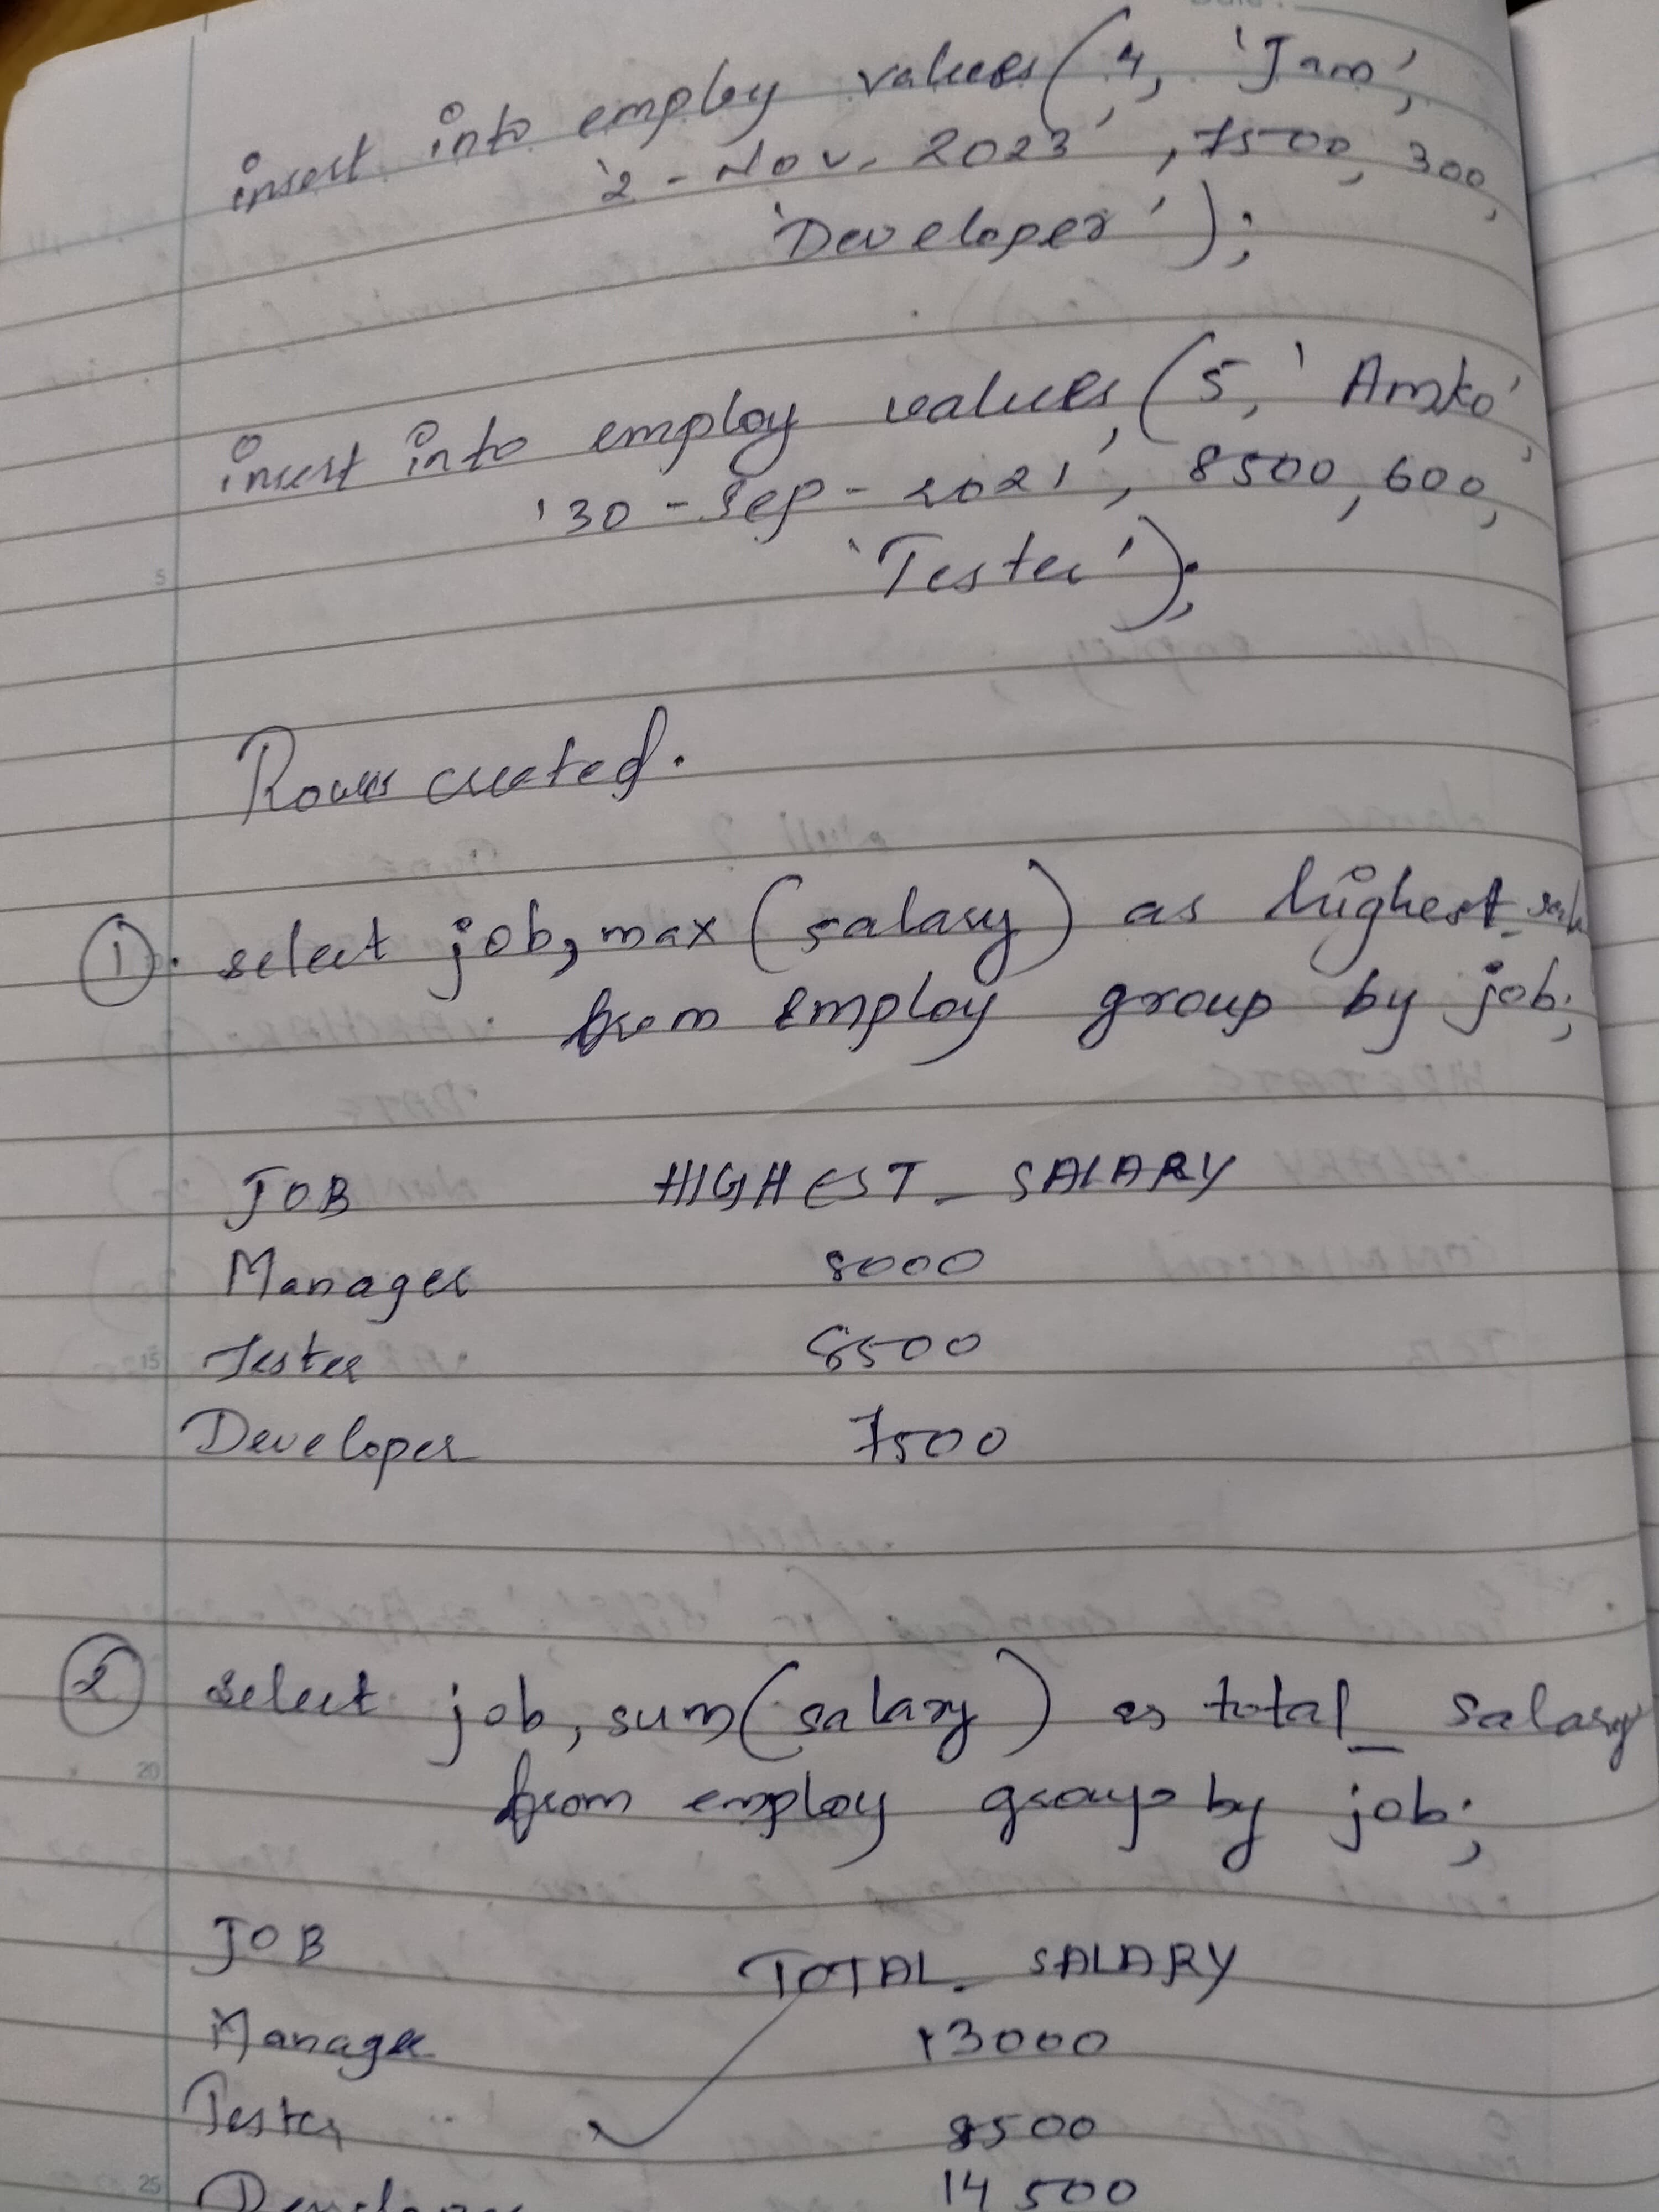 insert into employ values(4, 'Jam',
'2-Nov-2023', 7500, 300,
'Developer');
insert into employ values, (5, 'Amko',
'30-Sep-2021', 8500, 600,
'Tester');
5
Rows created.
1. select job, max(salary) as highest_
from employ group by job;
JOB HIGHEST_SALARY
Manager 8000
15 Tester 8500
Developer 7500
2 select job, sum(salary) as total_salary
20
from employ group by job;
JOB TOTAL_SALARY
Manager 13000
Tester 8500
25 Developer 14500